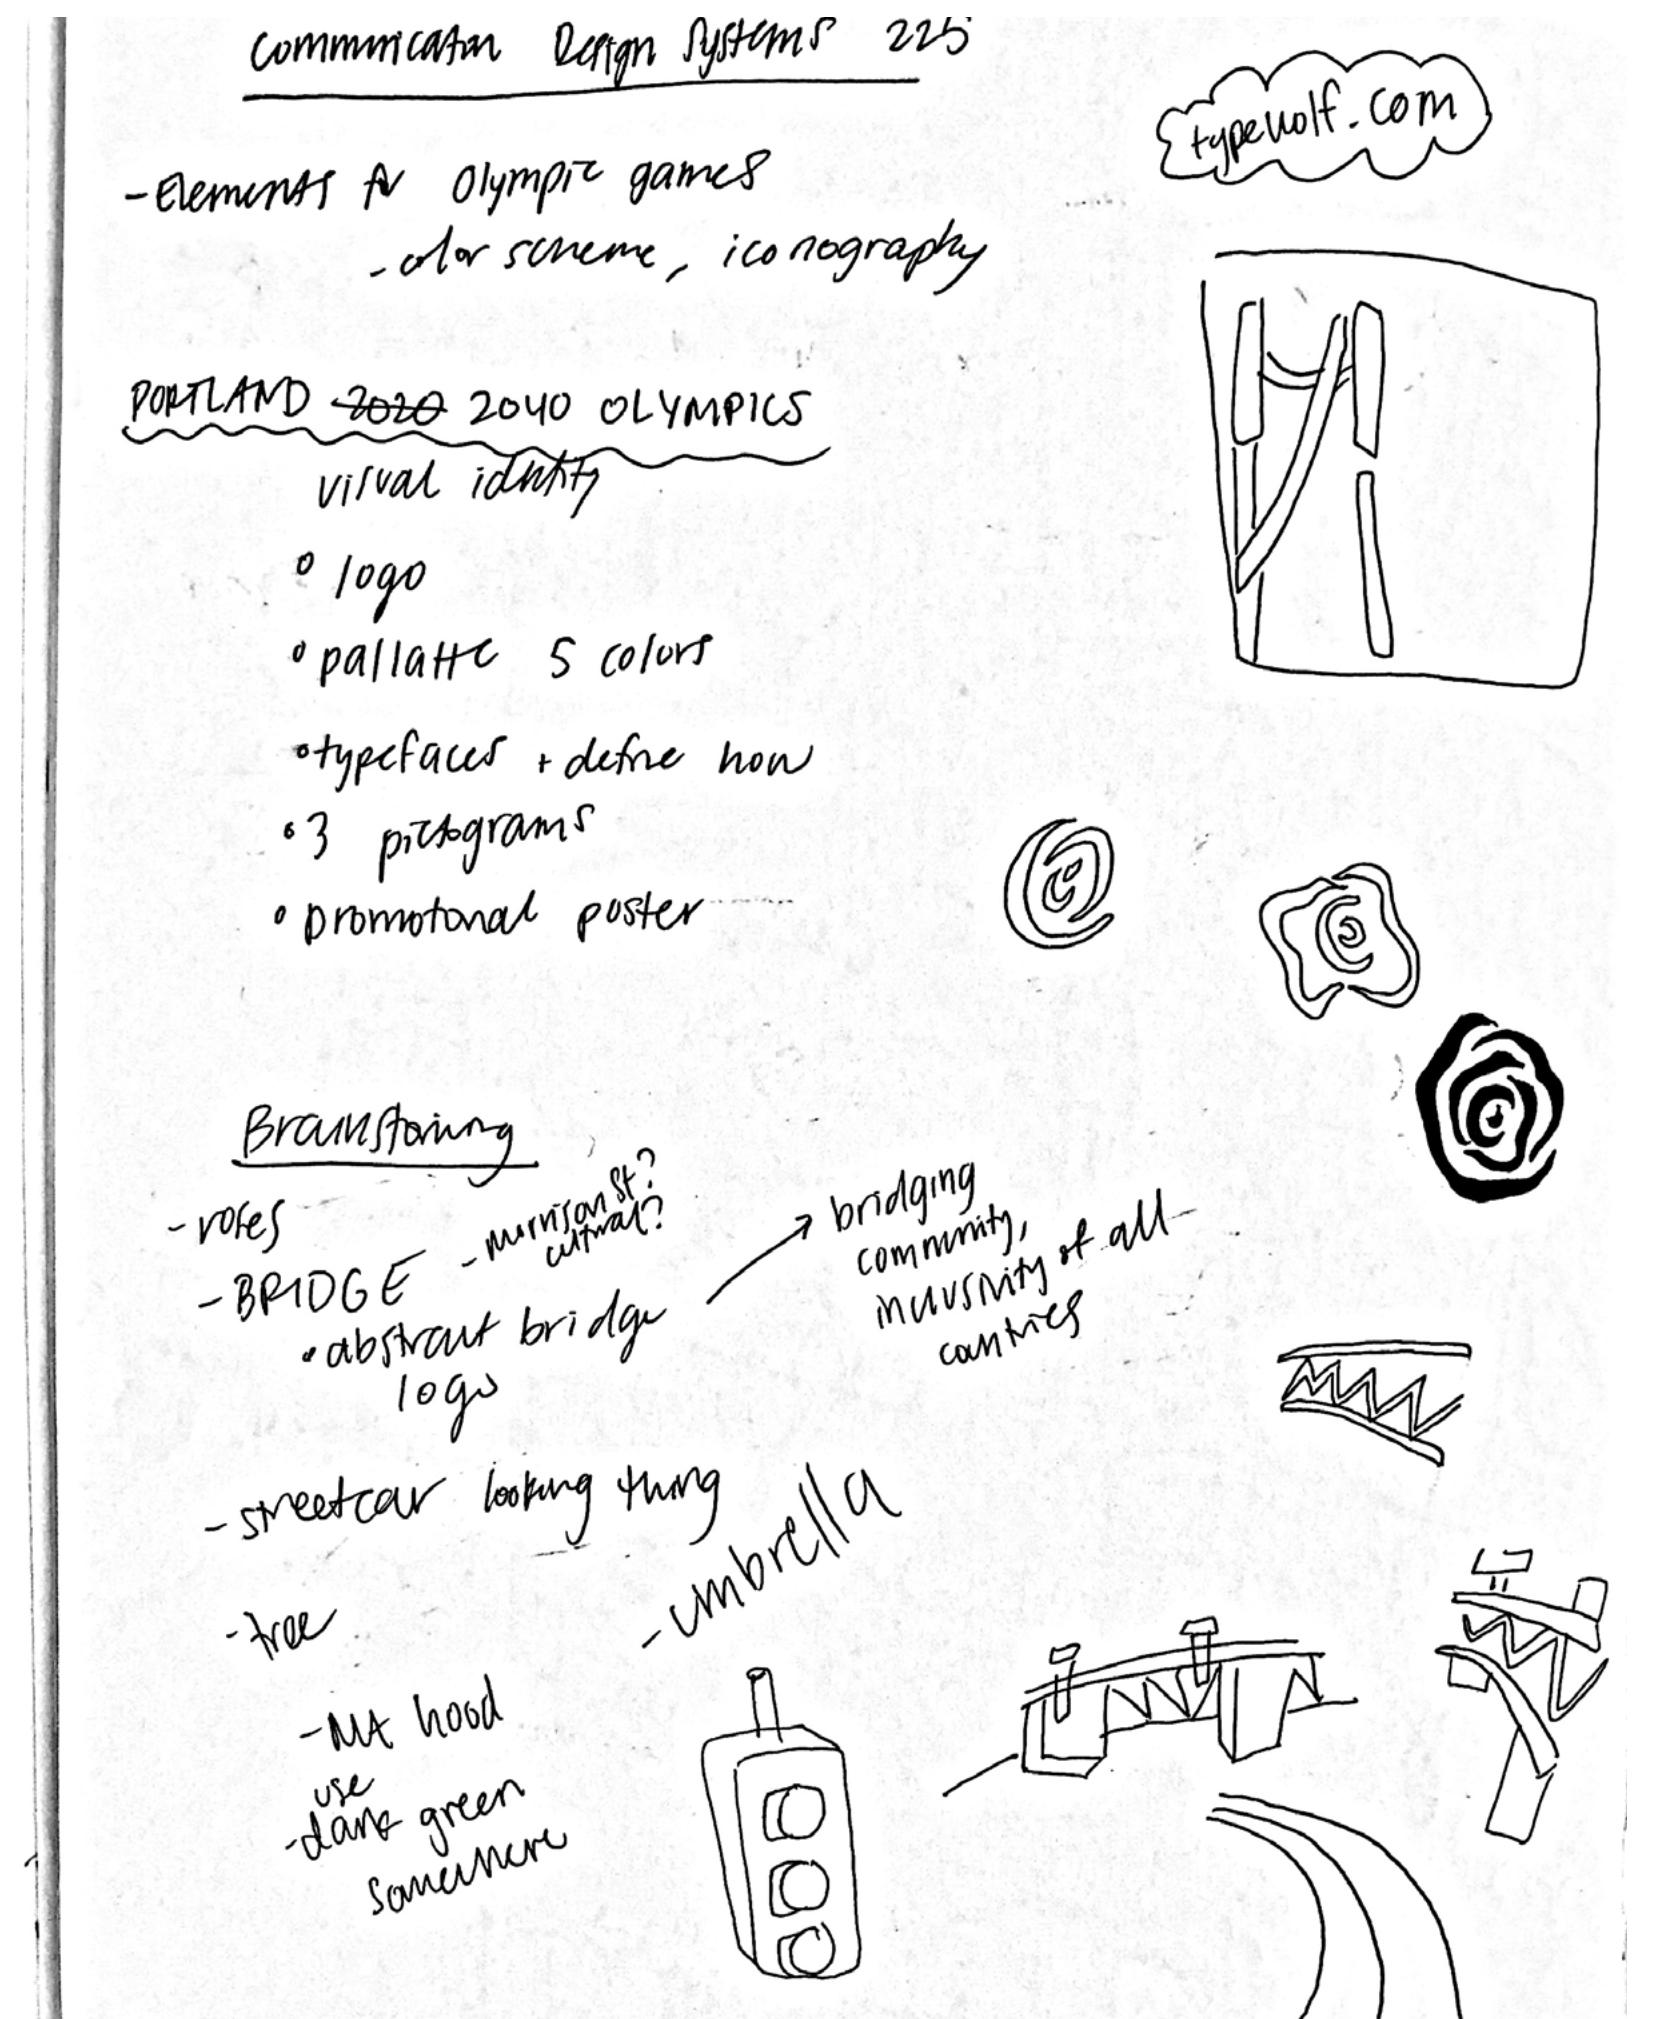 Communication Design Systems 225
typewolf.com
- Elements for Olympic games
- color scheme, iconography
PORTLAND 2020 2040 OLYMPICS
visual identity
° logo
° pallatte 5 colors
° typefaces + define how
° 3 pictograms
° promotonal poster
Brainstorming
- roses
- BRIDGE
- morrison st?
cultural?
• abstract bridge
logo
bridging
community,
inclusivity of all
countries
- streetcar looking thing
- umbrella
- tree
- Mt hood
use
- dark green
somewhere